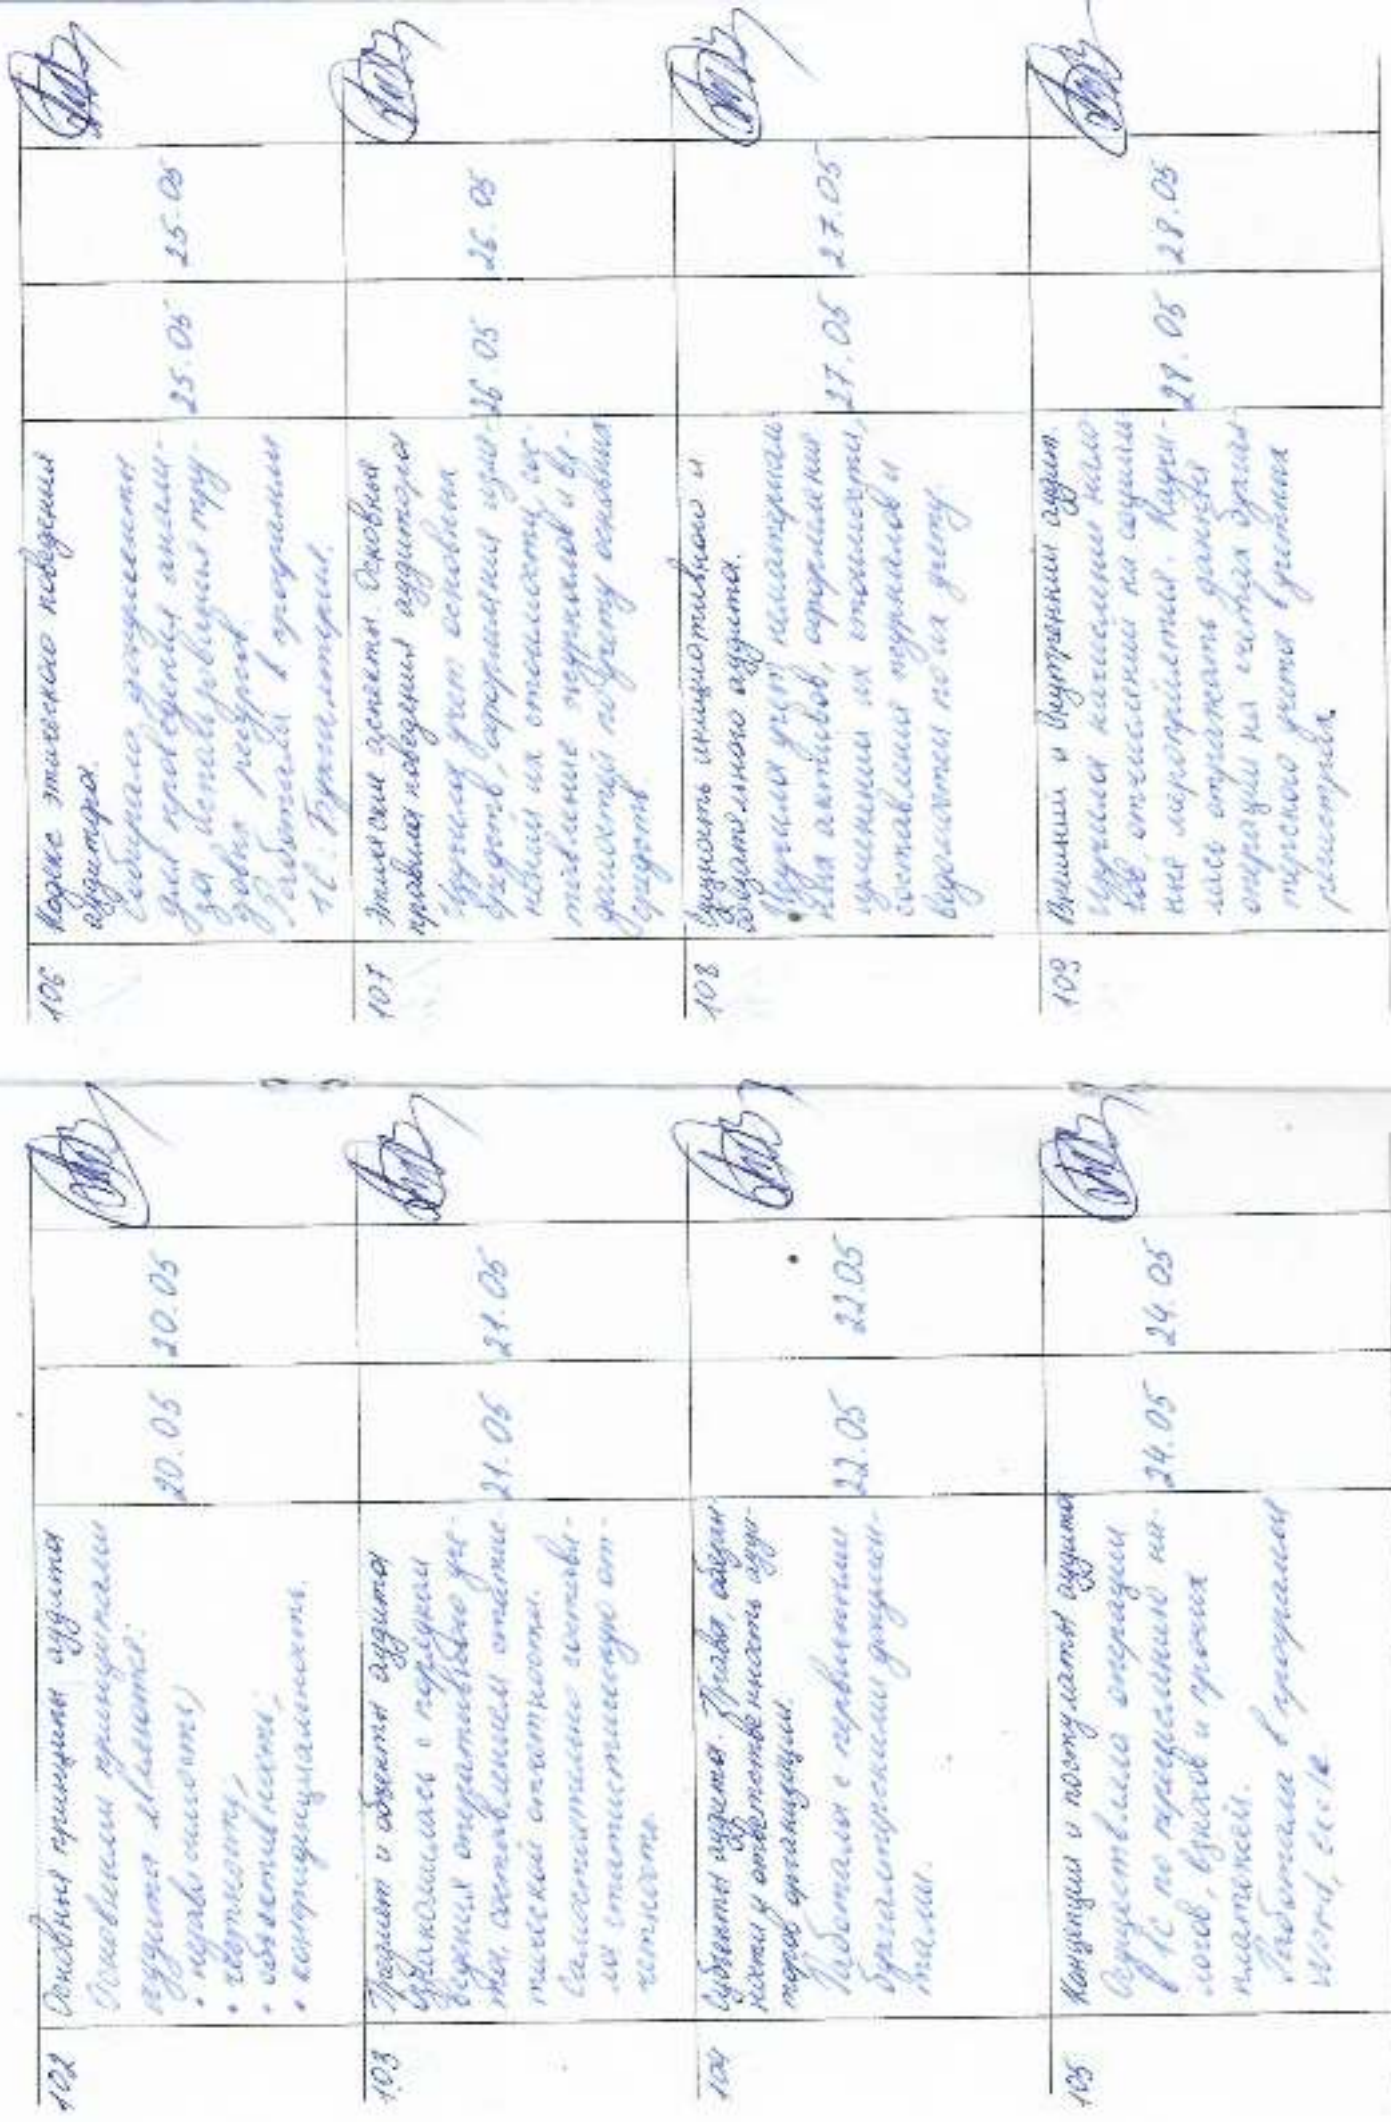 102 Основные принципы аудита
Основными принципами
аудита являются:
• независимость,
• честность,
• объективность,
• конфиденциальность.
20.05 20.05
103 Предмет и объекты аудита
Ознакомилась с порядком
ведения оперативного уче-
та, составлением статис-
тической отчетности.
Самостоятельно составля-
ла статистическую от-
четность.
21.05 21.05
104 Субъекты аудита. Права, обязан
ности и ответственность ауди-
торов организации.
Работала с первичными
бухгалтерскими докумен-
тами.
22.05 22.05
105 Концепции и постулаты аудита
Осуществляла операции
в 1С по перечислению на-
логов, взносов и прочих
платежей.
Работала в программе
word, excel
24.05 24.05
106 Кодекс этического поведения
аудитора.
Собирала документы
для проведения анали-
за использования тру-
довых ресурсов.
Работала в программе
1С: Бухгалтерия.
25.05 25.05
107 Этические аспекты. Основные
правила поведения аудитора
Изучила учет основных
средств, оформления изме-
нений их стоимости, сос-
тавление журналов и ве-
домостей по учету основных
средств.
26.05 26.05
108 Сущность инициативного и
обязательного аудита.
Изучила учет нематериаль
ных активов, оформления
изменения их стоимости,
составления журналов и
ведомостей по их учету.
27.05 27.05
109 Внешний и внутренний аудит.
Изучила начисления нало
гов, отчислений на социаль
ные мероприятия. Научи-
лась отражать данные
операции на счетах бухгал
терского учета в учетных
регистрах.
28.05 28.05